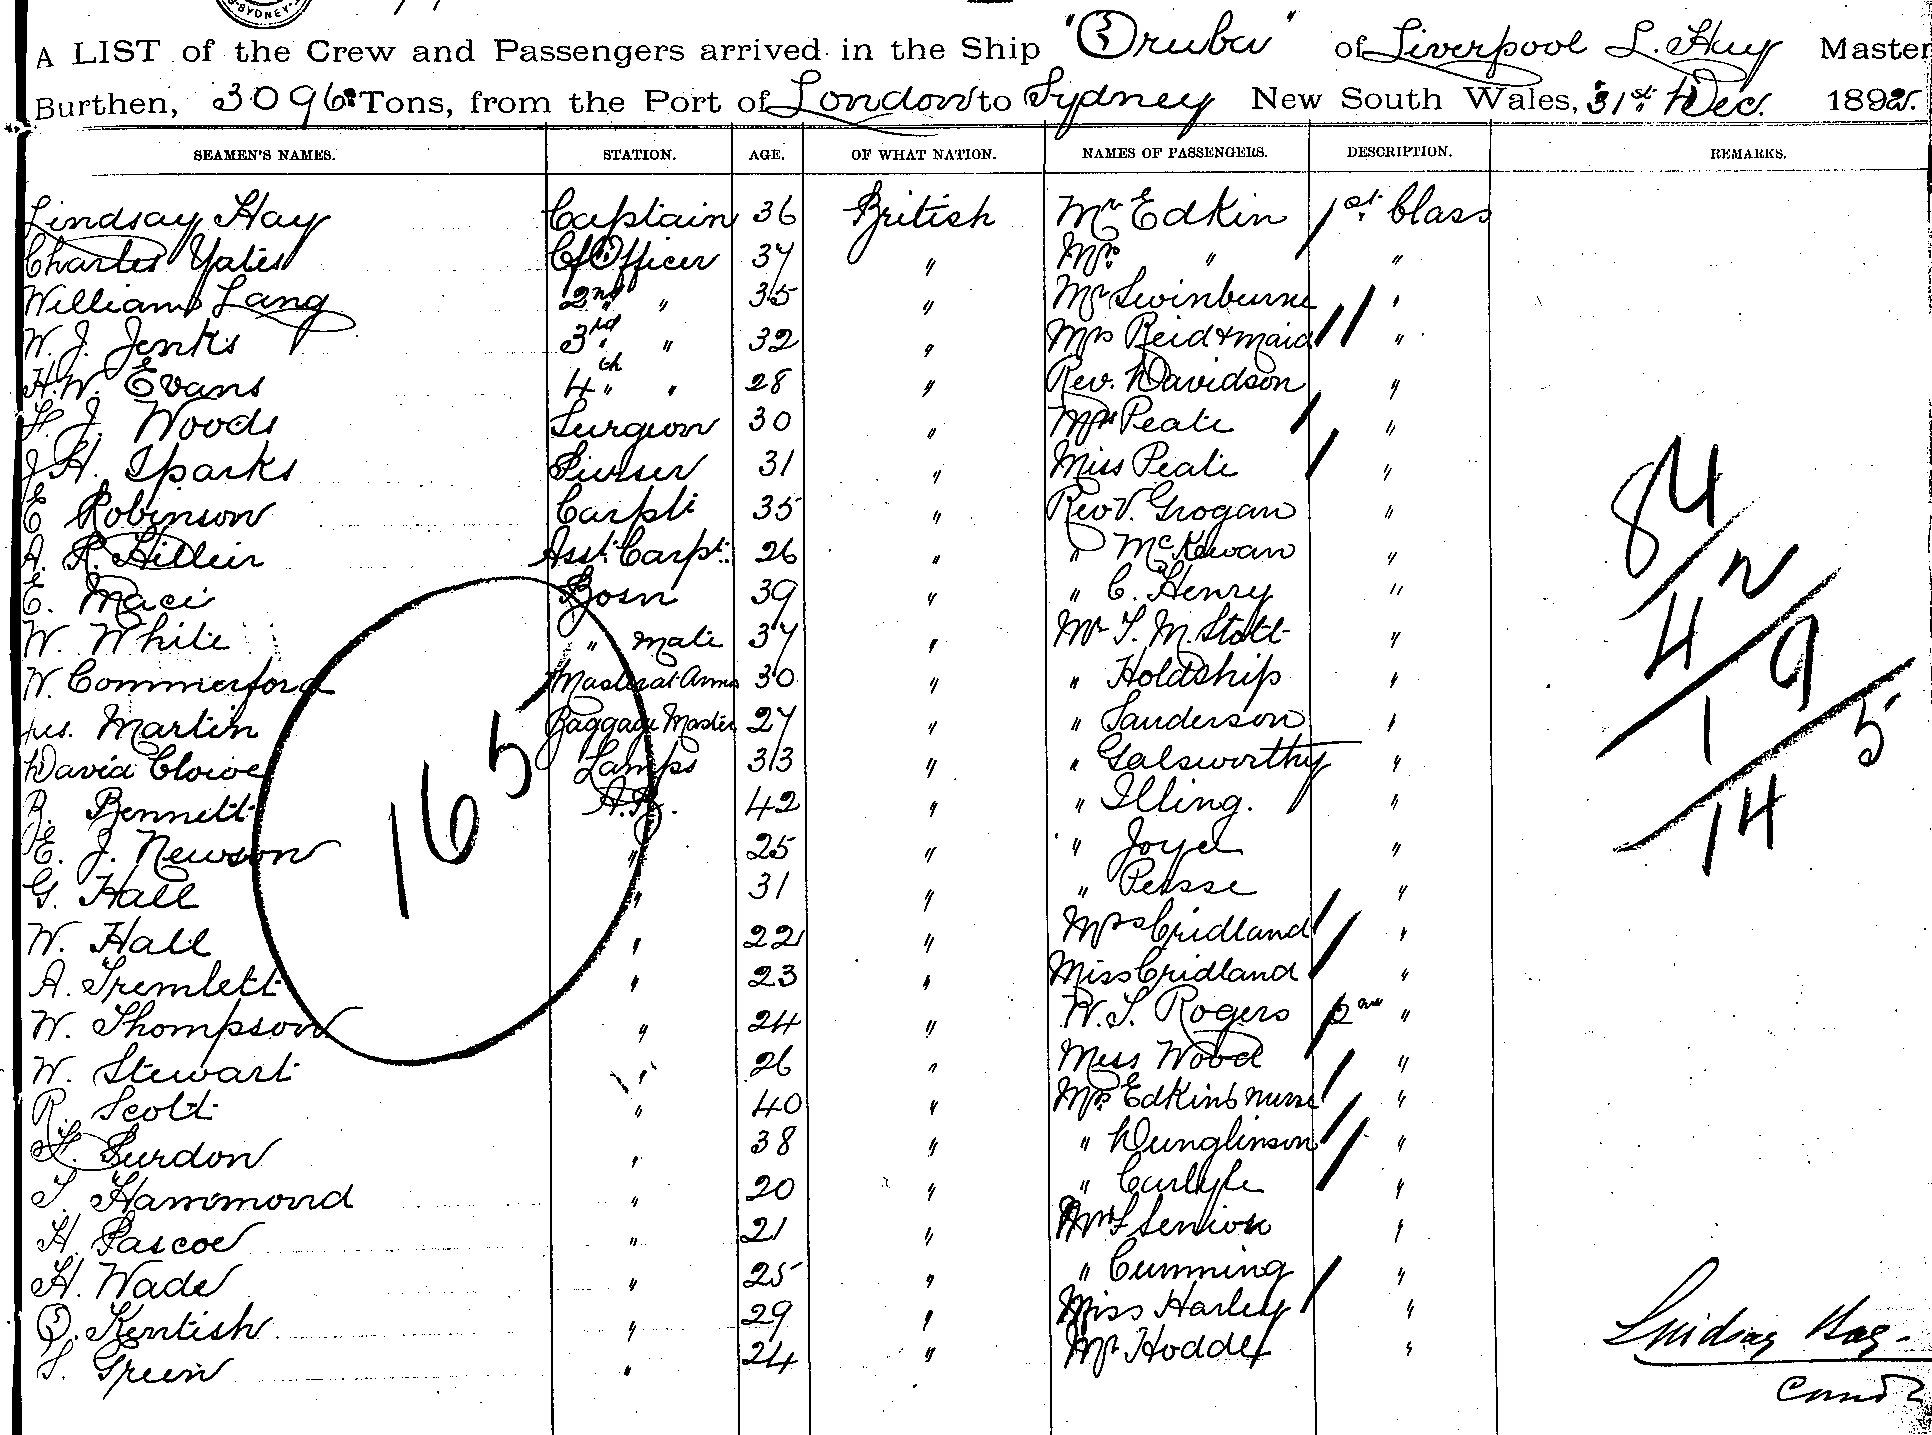 SYDNEY
A LIST of the Crew and Passengers arrived in the Ship "Oruba" of Liverpool L. Hay Master
Burthen, 3096 Tons, from the Port of London to Sydney New South Wales, 31st Dec. 1892.
SEAMEN'S NAMES. STATION. AGE. OF WHAT NATION. NAMES OF PASSENGERS. DESCRIPTION. REMARKS.
Lindsay Hay Captain 36 British Mr Edkin 1st Class
Charles Yates Cf Officer 37 " Mrs " "
William Lang 2nd " 35 " Mr Swinburne "
W. J. Jenks 3rd " 32 " Mrs Reid & maid "
H. W. Evans 4th " 28 " Rev. Davidson "
J. Woods Surgeon 30 " Mrs Peate "
J H. Sparks Purser 31 " Miss Peate "
E Robinson Carpt 35 " Rev V. Grogan "
A. R. Hillier Asst Carpt. 26 " " McKewan "
E. Mace Bosn 39 " " C. Henry "
W. White " mate 37 " Mr T. M. Stott "
W. Commerford Master at Arms 30 " " Holdship "
Jas. Martin Baggage Master 27 " " Sanderson "
David Clowe Lamps 33 " " Galsworthy "
R. Bennett A.B. 42 " " Illing. "
E. J. Newson " 25 " " Joyce "
G. Hall " 31 " " Persse "
W. Hall " 22 " Mrs Cridland "
A. Tremlett " 23 " Miss Cridland "
W. Thompson " 24 " W. S. Rogers 2nd "
W. Stewart " 26 " Miss Wood "
R. Scott " 40 " Mrs Edkins nurse "
Purdon " 38 " " Dunglinson "
T. Hammond " 20 " " Carlyle "
H. Pascoe " 21 " Senior "
H. Wade " 25 " " Cumming "
O. Kentish " 29 " Miss Harley "
S. Green " 24 " Mr Hodder "
165
84
2
4
9
1
5
14
Lindsay Hay